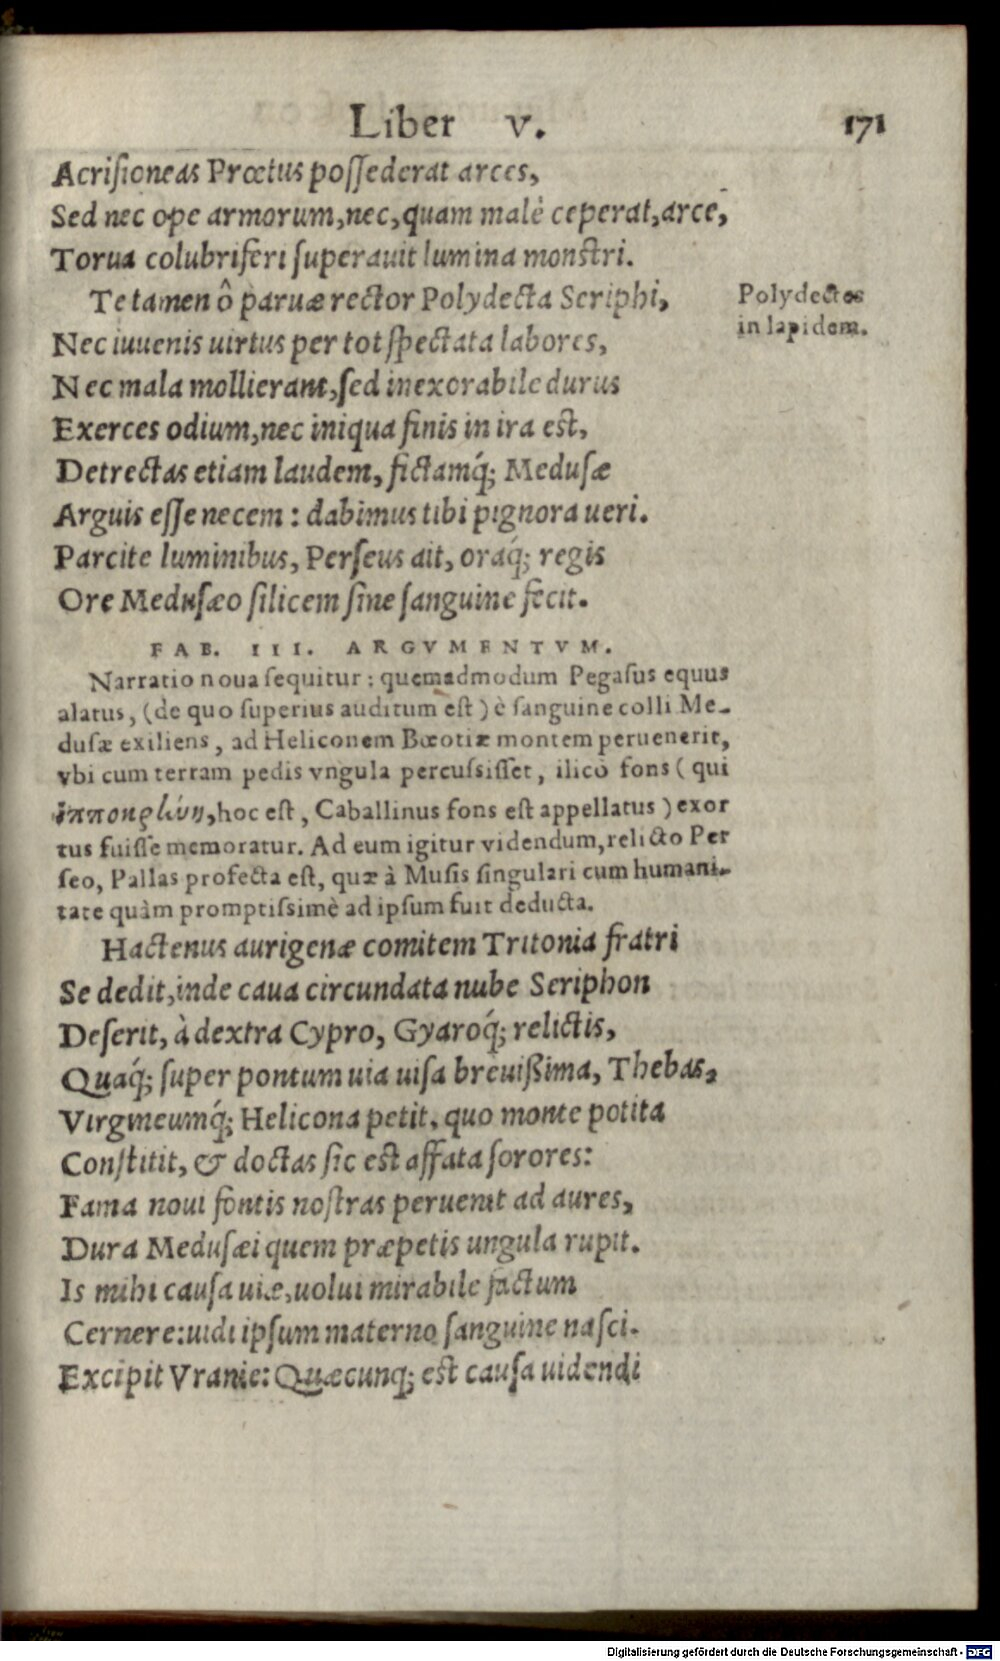 Liber V. 171
Acrisioneas Prœtus possederat arces,
Sed nec ope armorum, nec, quam malè ceperat, arcē,
Torua colubriferi superauit lumina monstri.
Te tamen ô paruæ rector Polydecta Seriphi,
Polydectes
in lapidem.
Nec iuuenis uirtus per tot spectata labores,
Nec mala mollierant, sed inexorabile durus
Exerces odium, nec iniqua finis in ira est,
Detrectas etiam laudem, fictamq́; Medusæ
Arguis esse necem: dabimus tibi pignora ueri.
Parcite luminibus, Perseus ait, oraq́; regis
Ore Medusæo silicem sine sanguine fecit.
FAB. III. ARGVMENTVM.
Narratio noua sequitur: quemadmodum Pegasus equus
alatus, (de quo superius auditum est) è sanguine colli Me-
dusæ exiliens, ad Heliconem Bœotiæ montem peruenerit,
vbi cum terram pedis vngula percussisset, ilicò fons (qui
ἱπποκρήνη, hoc est, Caballinus fons est appellatus) exor
tus fuisse memoratur. Ad eum igitur videndum, relicto Per
seo, Pallas profecta est, quæ à Musis singulari cum humani-
tate quàm promptissimè ad ipsum fuit deducta.
Hactenus aurigenæ comitem Tritonia fratri
Se dedit, inde caua circundata nube Seriphon
Deserit, à dextra Cypro, Gyaroq́; relictis,
Quaq́; super pontum uia uisa breuißima, Thebas,
Virgineumq́; Helicona petit. quo monte potita
Constitit, & doctas sic est affata sorores:
Fama noui fontis nostras peruenit ad aures,
Dura Medusæi quem præpetis ungula rupit.
Is mihi causa uiæ, uolui mirabile factum
Cernere: uidi ipsum materno sanguine nasci.
Excipit Vranie: Quæcunq; est causa uidendi
Digitalisierung gefördert durch die Deutsche Forschungsgemeinschaft - DFG